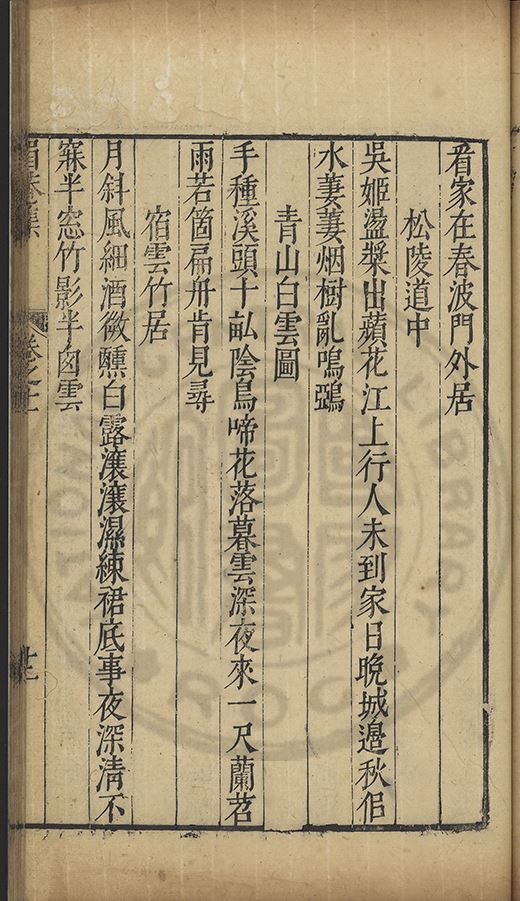 看家在春波門外居
松陵道中
吳姬盪槳出蘋花江上行人未到家日晚城邊秋佀
水萋萋烟樹亂鳴鵶
青山白雲圖
手種溪頭十畝陰鳥啼花落暮雲深夜來一尺蘭苕
雨若箇扁舟肯見尋
宿雲竹居
月斜風細酒微醺白露瀼瀼濕練裙底事夜深淸不
寐半窓竹影半囱雲
眉菴集
卷之十一
十三